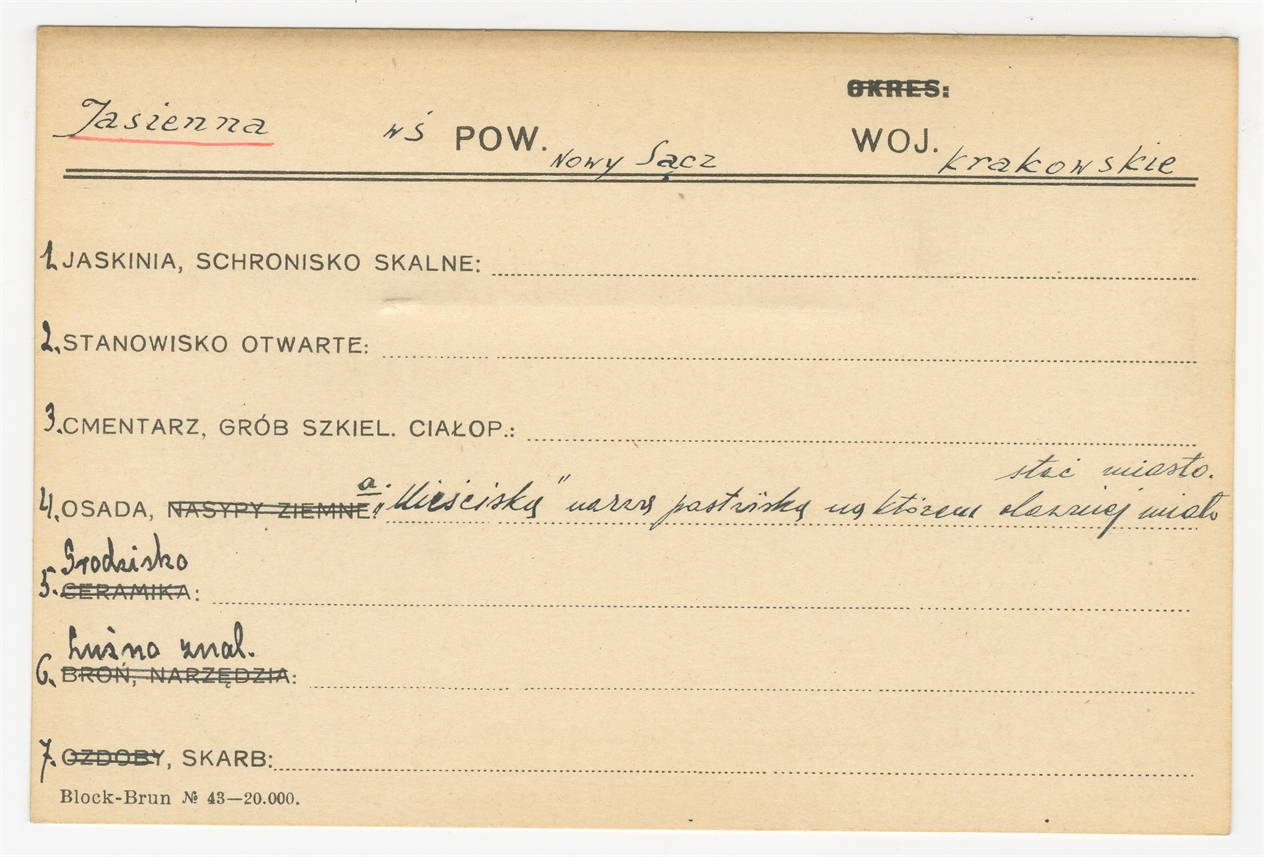 OKRES:
Jasienna wś POW. Nowy Sącz WOJ. krakowskie
1. JASKINIA, SCHRONISKO SKALNE:
2. STANOWISKO OTWARTE:
3. CMENTARZ, GRÓB SZKIEL. CIAŁOP.:
stać miasto.
4. OSADA, NASYPY ZIEMNE: a. „Mieściska" na którem miało
Grodzisko
5. CERAMIKA:
Luźno znal.
6. BROŃ, NARZĘDZIA:
7. OZDOBY, SKARB:
Block-Brun № 43—20.000.